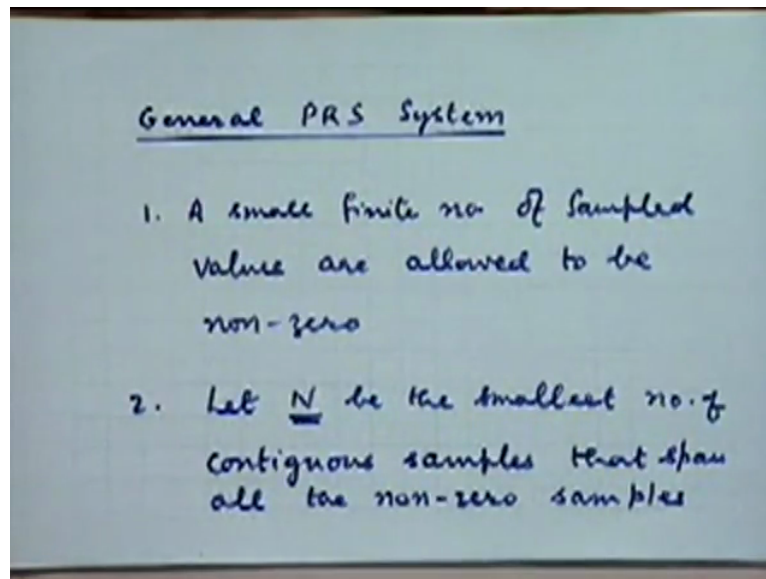 General PRS System
1. A small finite no. of Sampled
values are allowed to be
non-zero
2. Let N be the smallest no. of
contiguous samples that span
all the non-zero samples